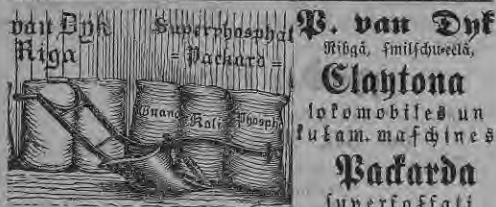 van Dyk
Riga
Superphosphat
= Packard =
Guano
Kali
Phosph
P. van Dyk
Rihgâ, smilschu-eelâ,
Claytona
lokomobiles un
kulam-maschines
Packarda
superfosfati